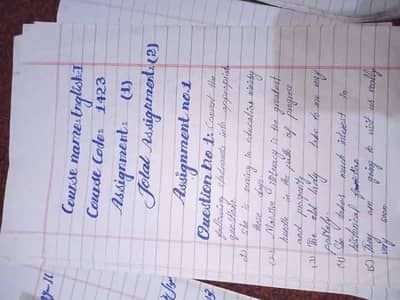 Course name: English-I
Course Code: 1423
Assignment: (1)
Total Assignment: (2)
Assignment no.1
Question no 1: Convert the
following statements into appropriate
question
(1) She is in education
these days
(2) illiteracy is the greatest
hurdle in the path of progress
and prosperity
(3) The old lady to me very
politely
(4) He takes much interest in
historical
(5) They are going to visit us
very soon